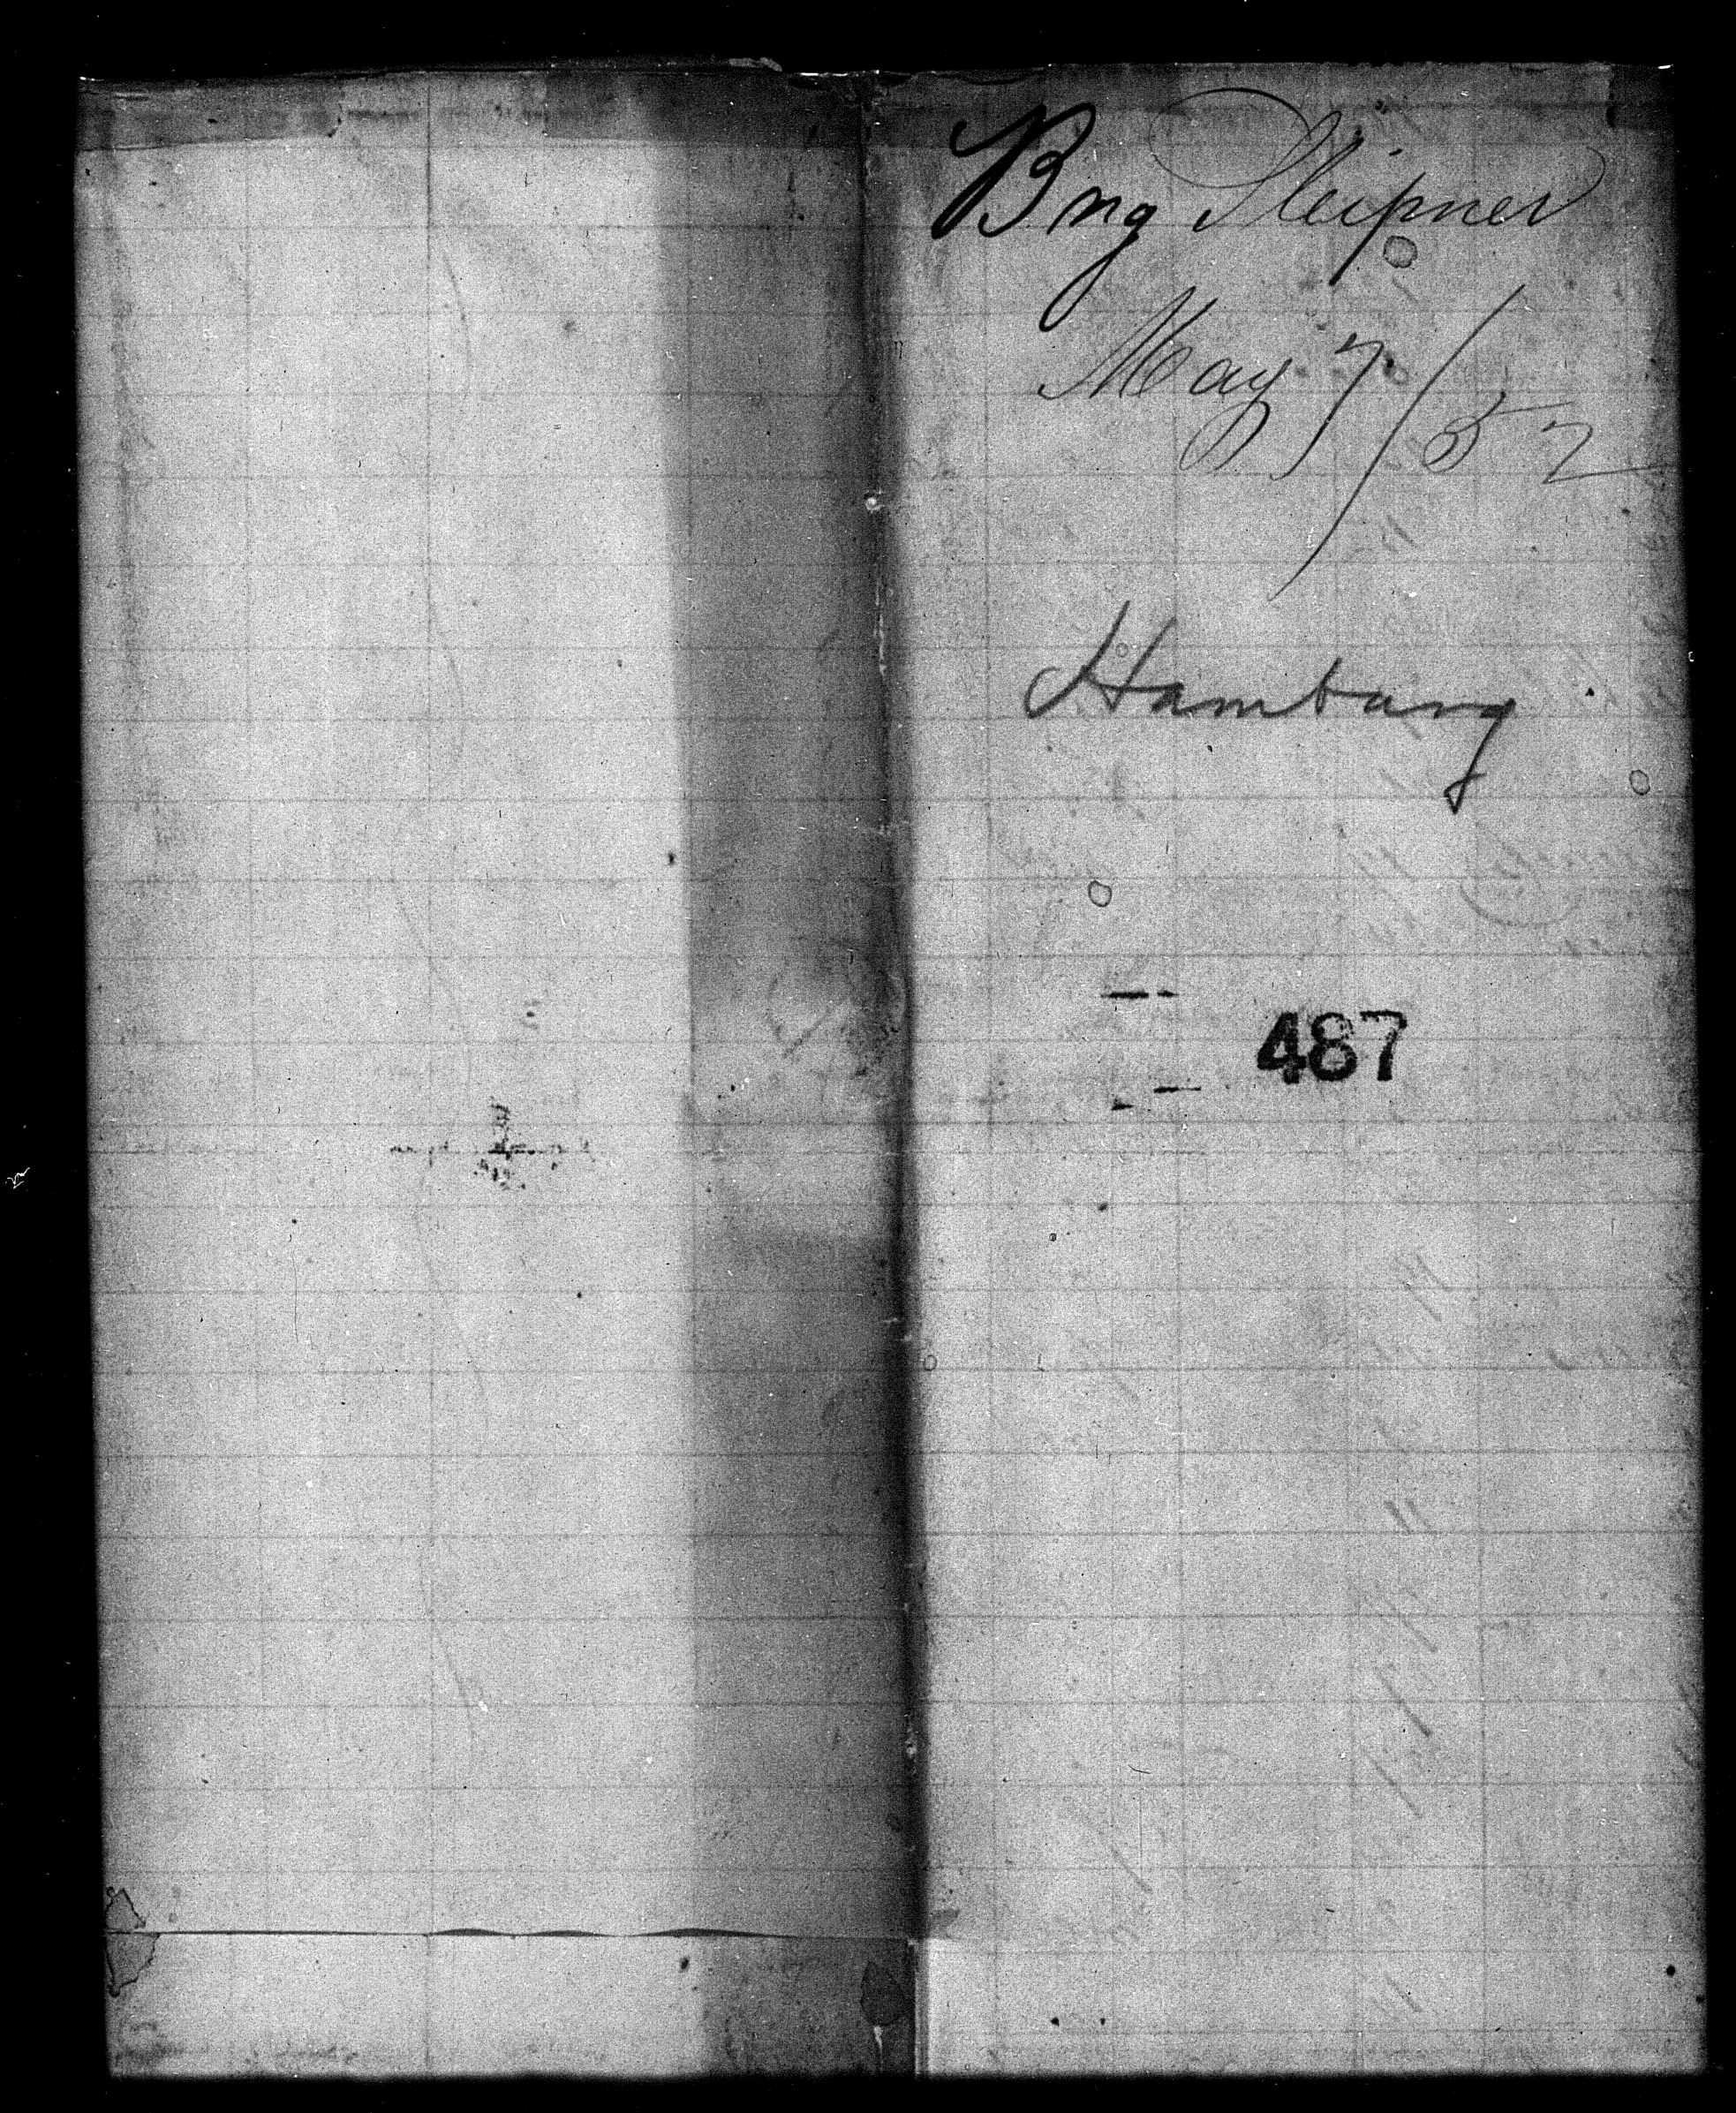 Brig Sleipner
May 7/52
Hamburg
487